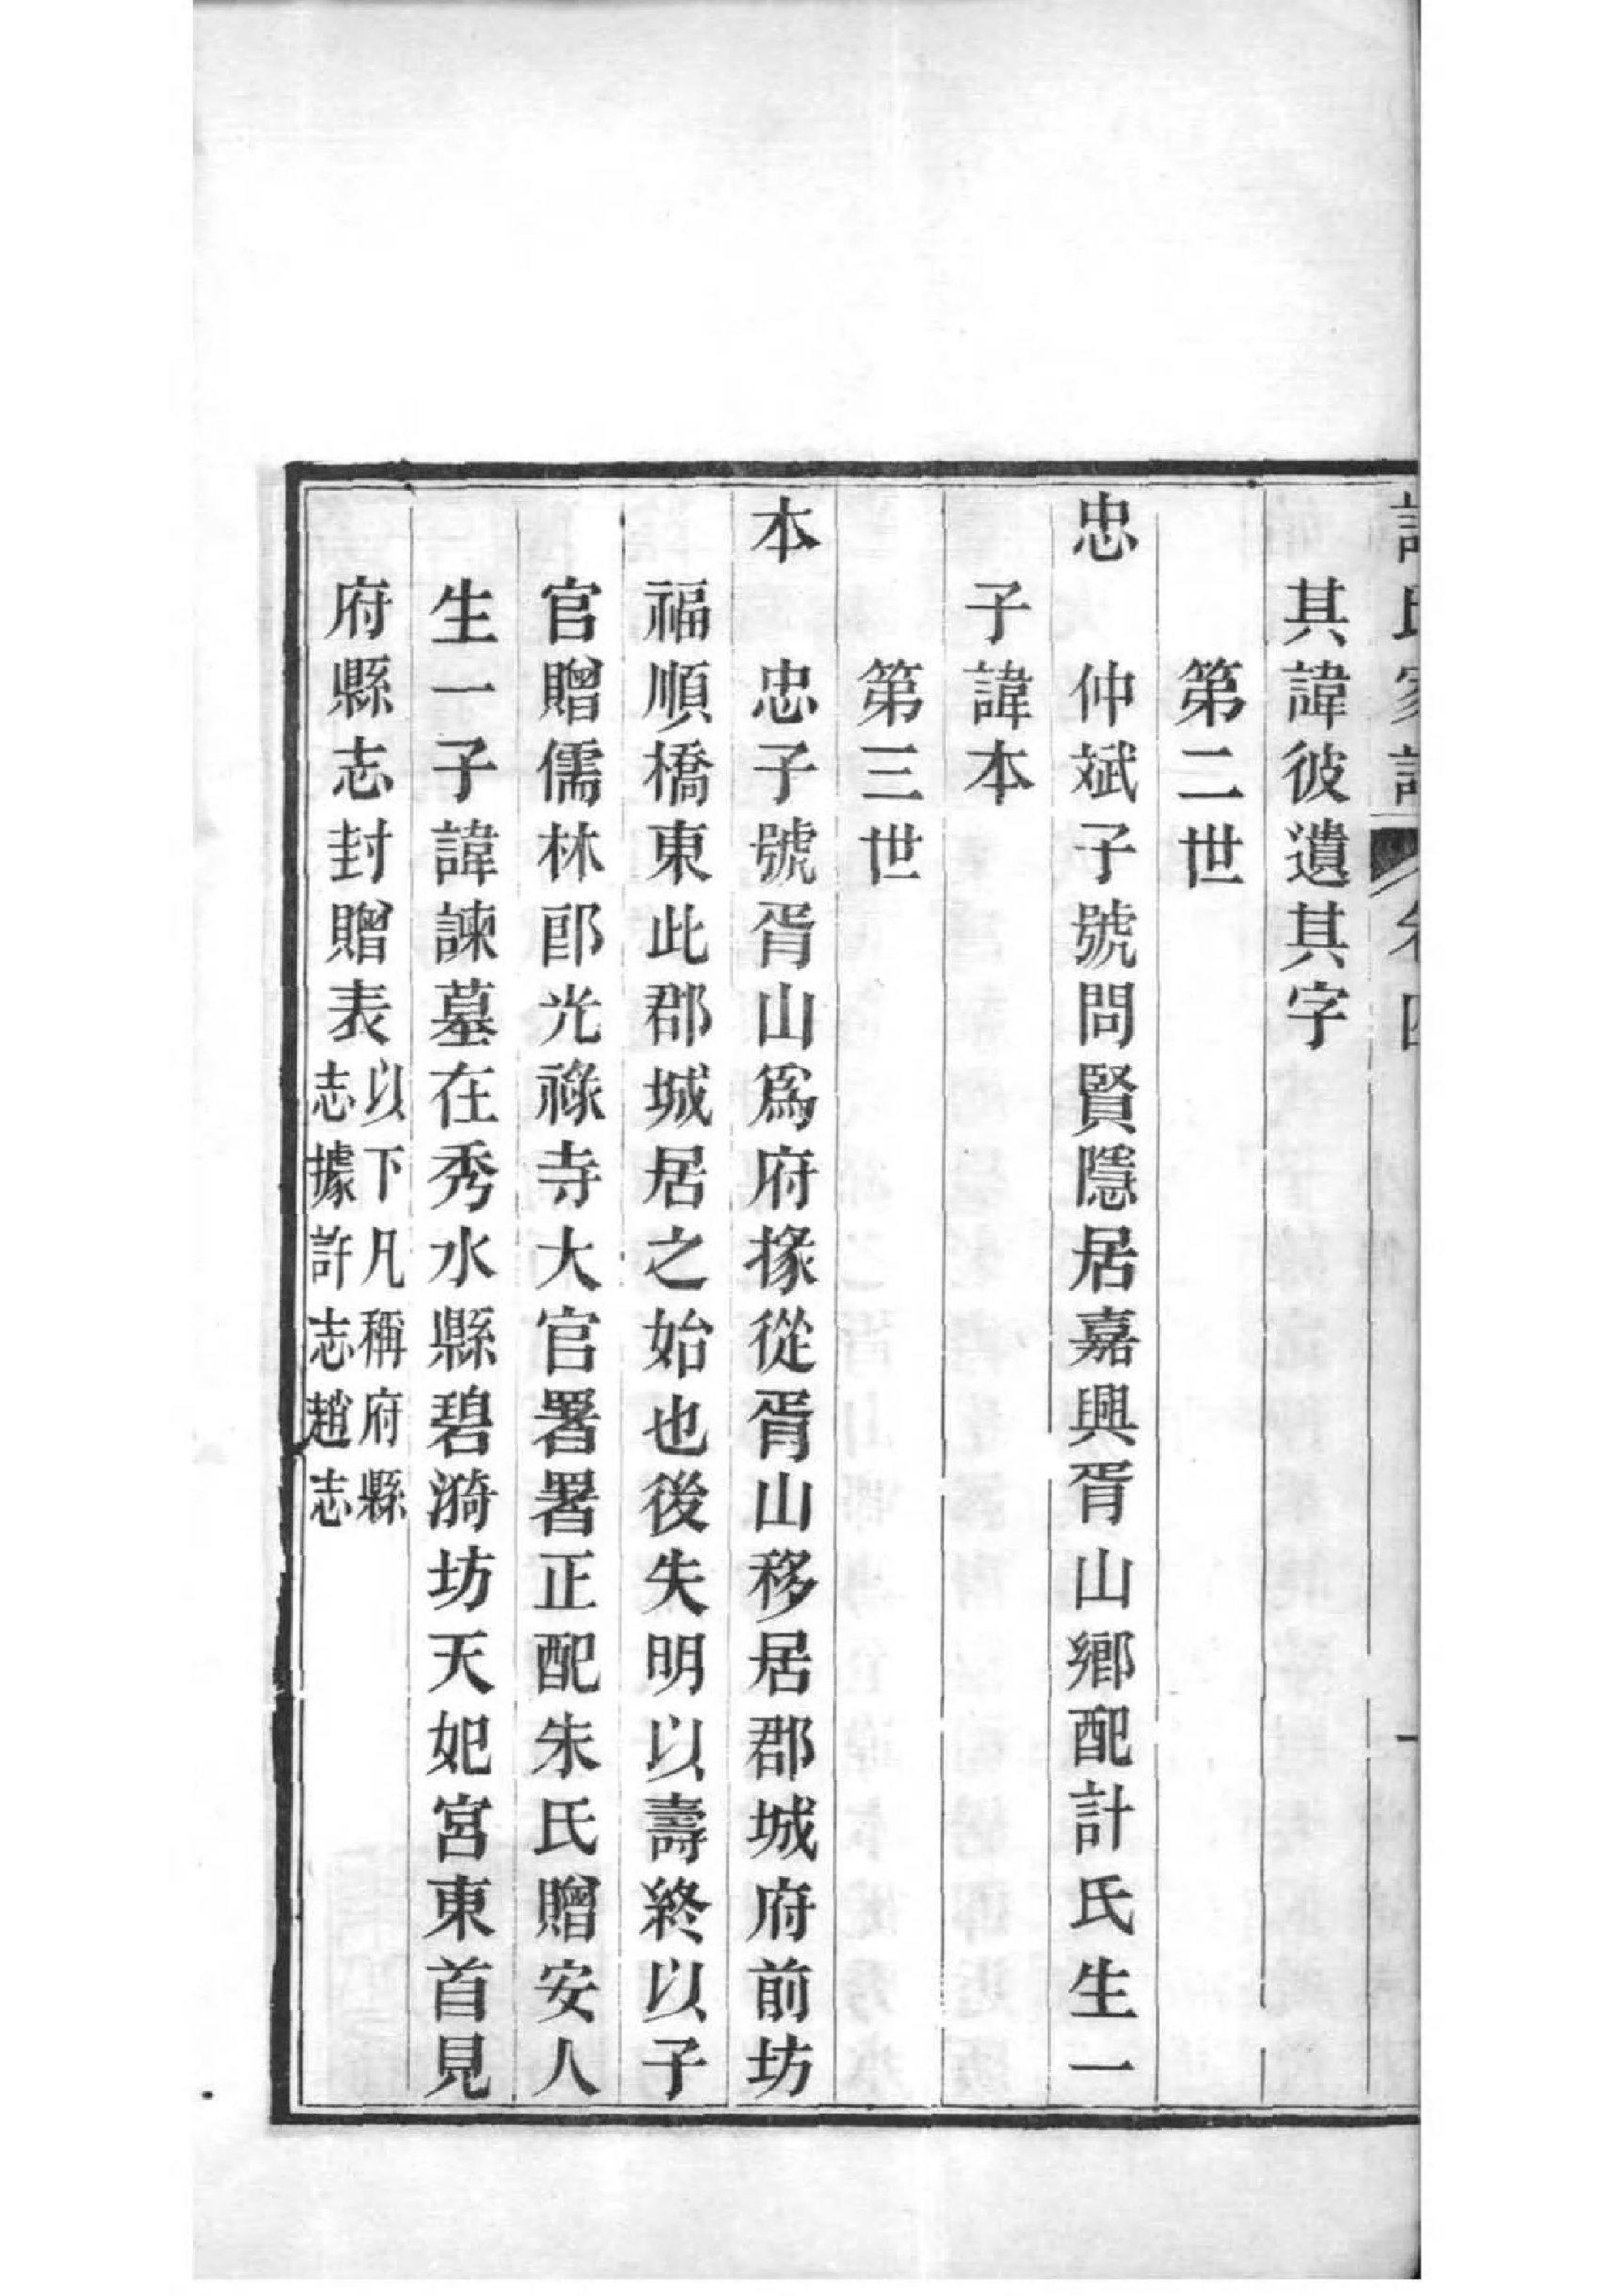 其諱彼遺其字
第二世
忠　仲斌子號問賢隱居嘉興胥山鄉配計氏生一
子諱本
第三世
本　忠子號胥山爲府掾從胥山移居郡城府前坊
福順橋東此郡城居之始也後失明以壽終以子
官贈儒林郎光祿寺大官署署正配朱氏贈安人
生一子諱諫墓在秀水縣碧漪坊天妃宮東首見
府縣志封贈表以下凡稱府縣
志據許志趙志